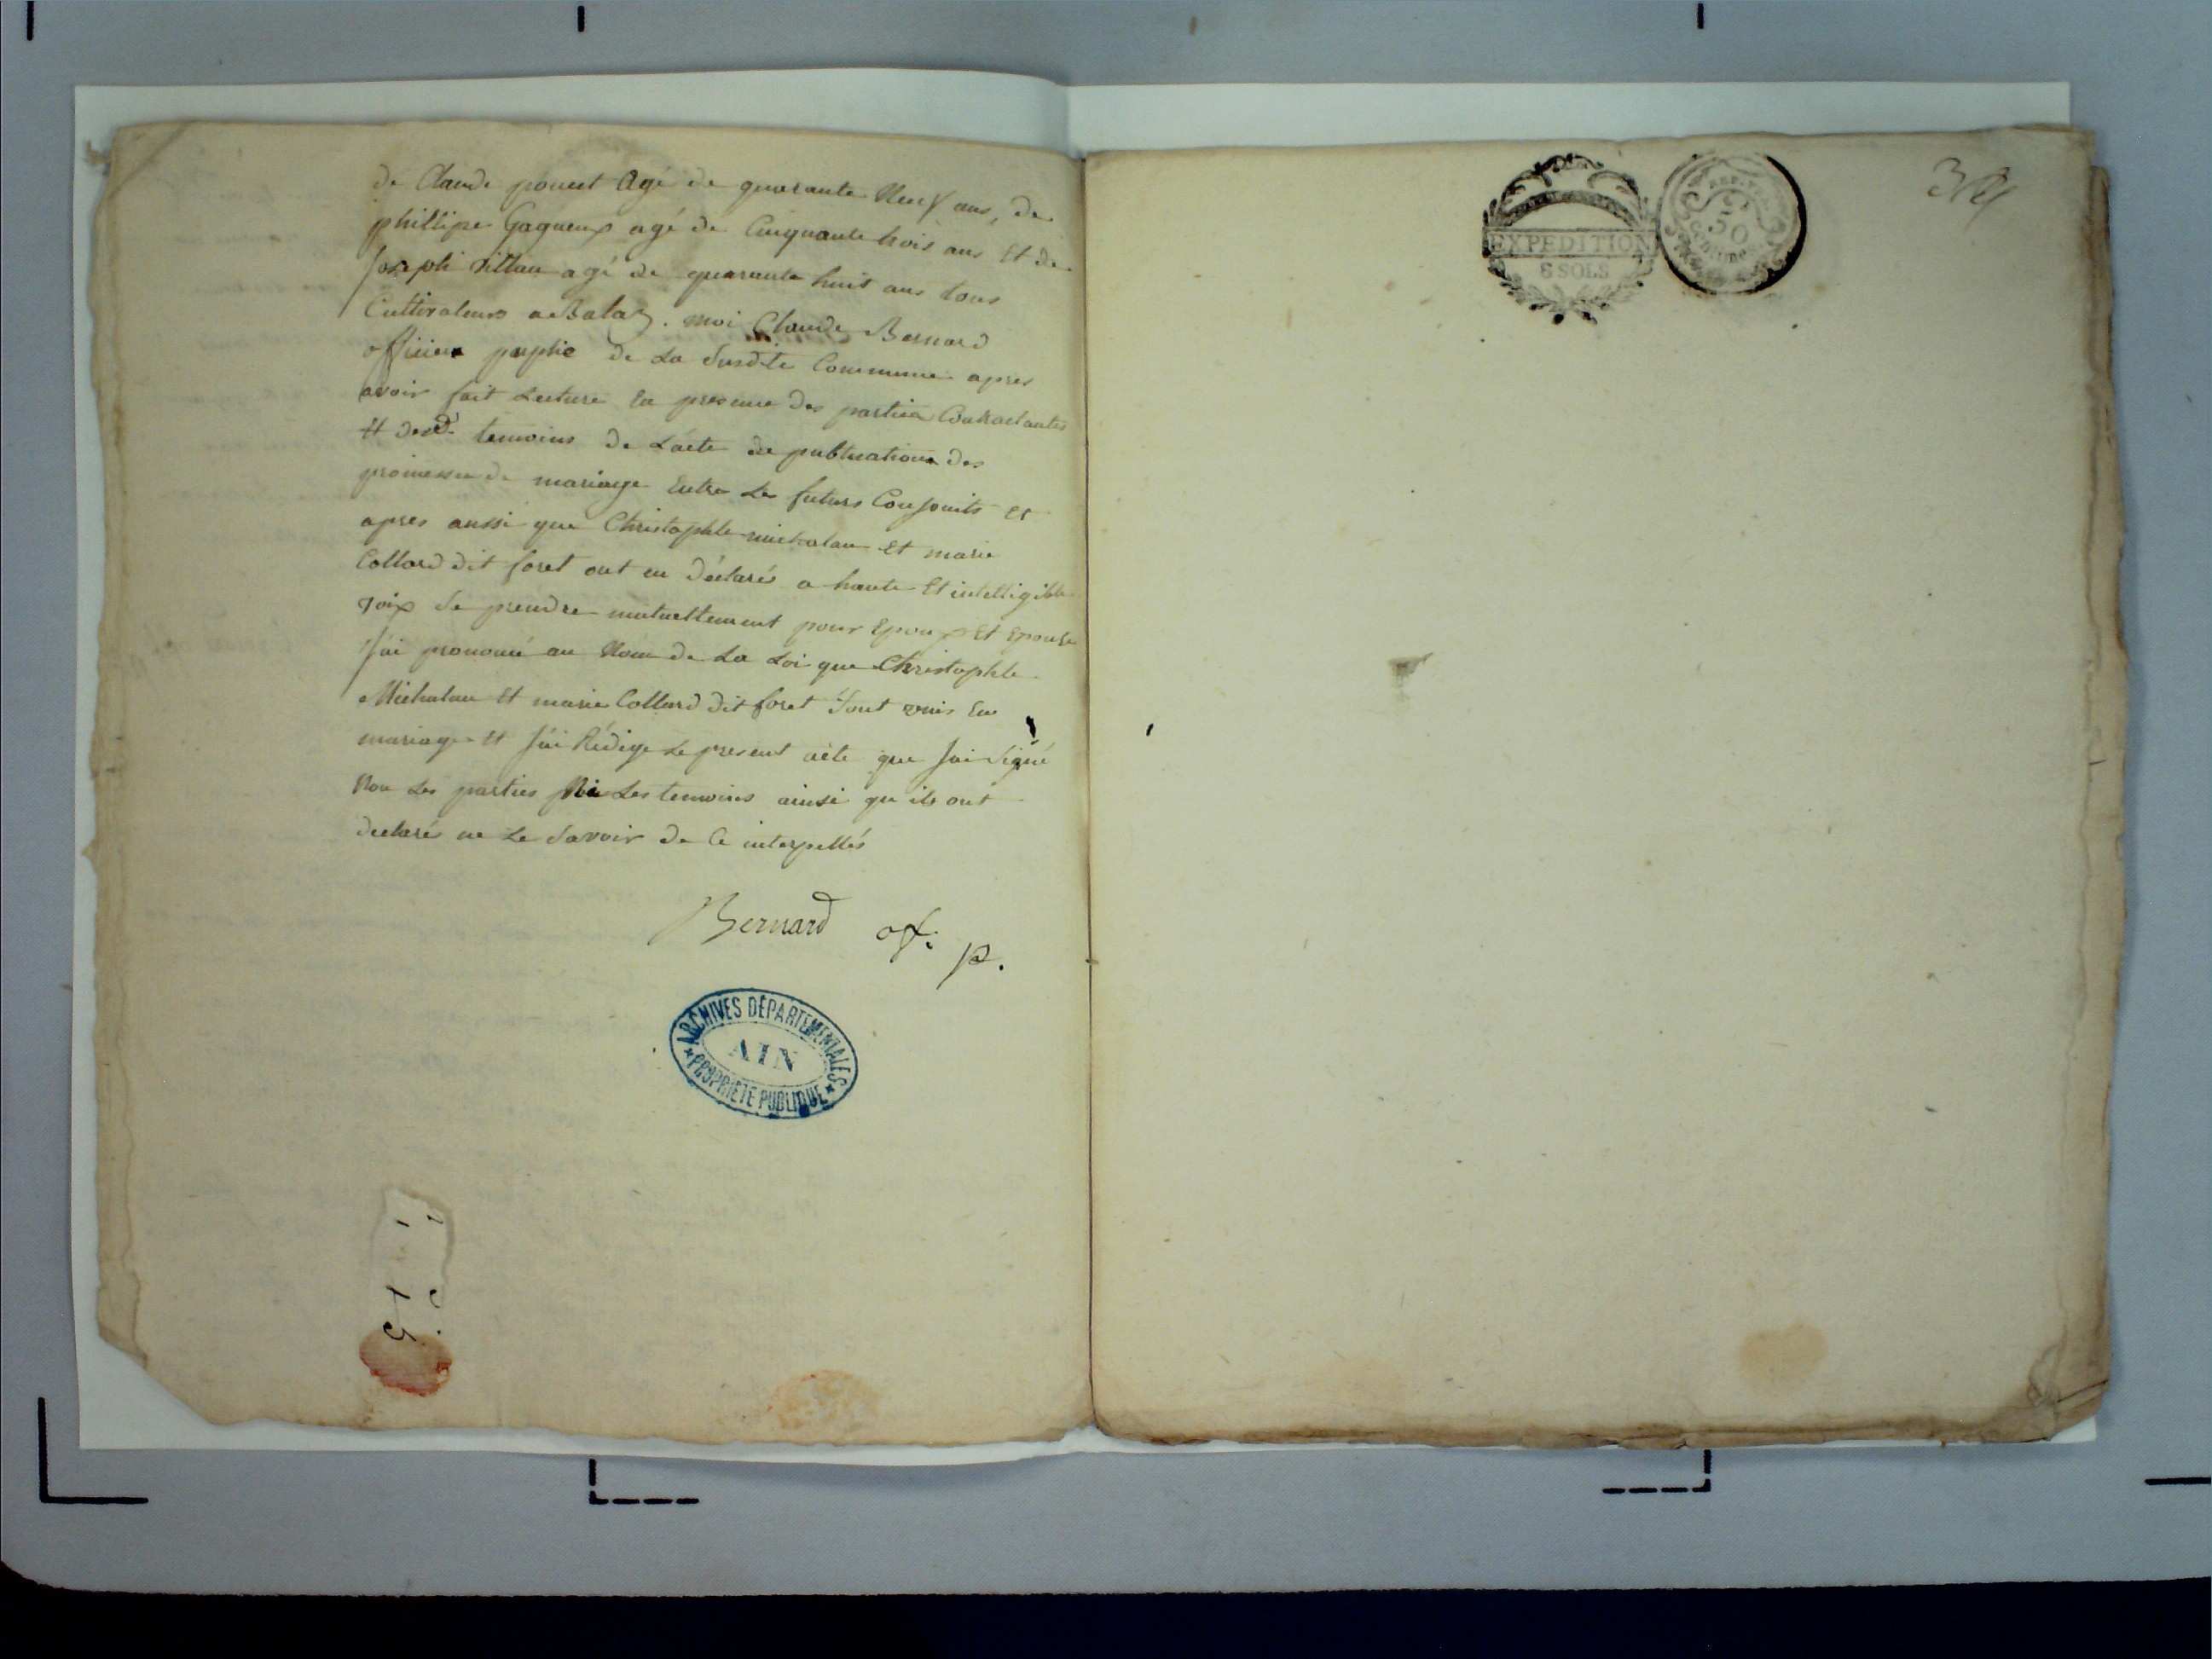 de Claude pouect Agé de quarante Neuf ans, de
phillipe Gagneux agé de Cinquante trois ans Et de
Joseph Villau agé de quarante huit ans tous
Cultivateurs a Balaz. moi Claude Bernard
officier puplic de La Susdite Commune apres
avoir fait Lecture En presence des parties Contractantes
Et desd. temoins de L'acte de publication des
promesse de mariage Entre Les futurs Conjoints Et
apres aussi que Christophle michalau Et marie
Collard dit foret ont eu déclaré a haute Et intelligible
voix Se prendre mutuellement pour Epoux Et Epouse
J'ai prononcé au Nom de La Loi que Christophle
Michalau Et marie Collard dit foret Sont unis En
mariage Et J'ai Rédigé Le present acte que J'ai Signé
Non Les parties Ni Les temoins ainsi qu'ils ont
declaré ne Le Savoir de Ce interpellés
Bernard of. p.
ARCHIVES DÉPARTEMENTALES
AIN
PROPRIÉTÉ PUBLIQUE
EXPEDITION
6 SOLS
REP. FRA.
50
Centimes